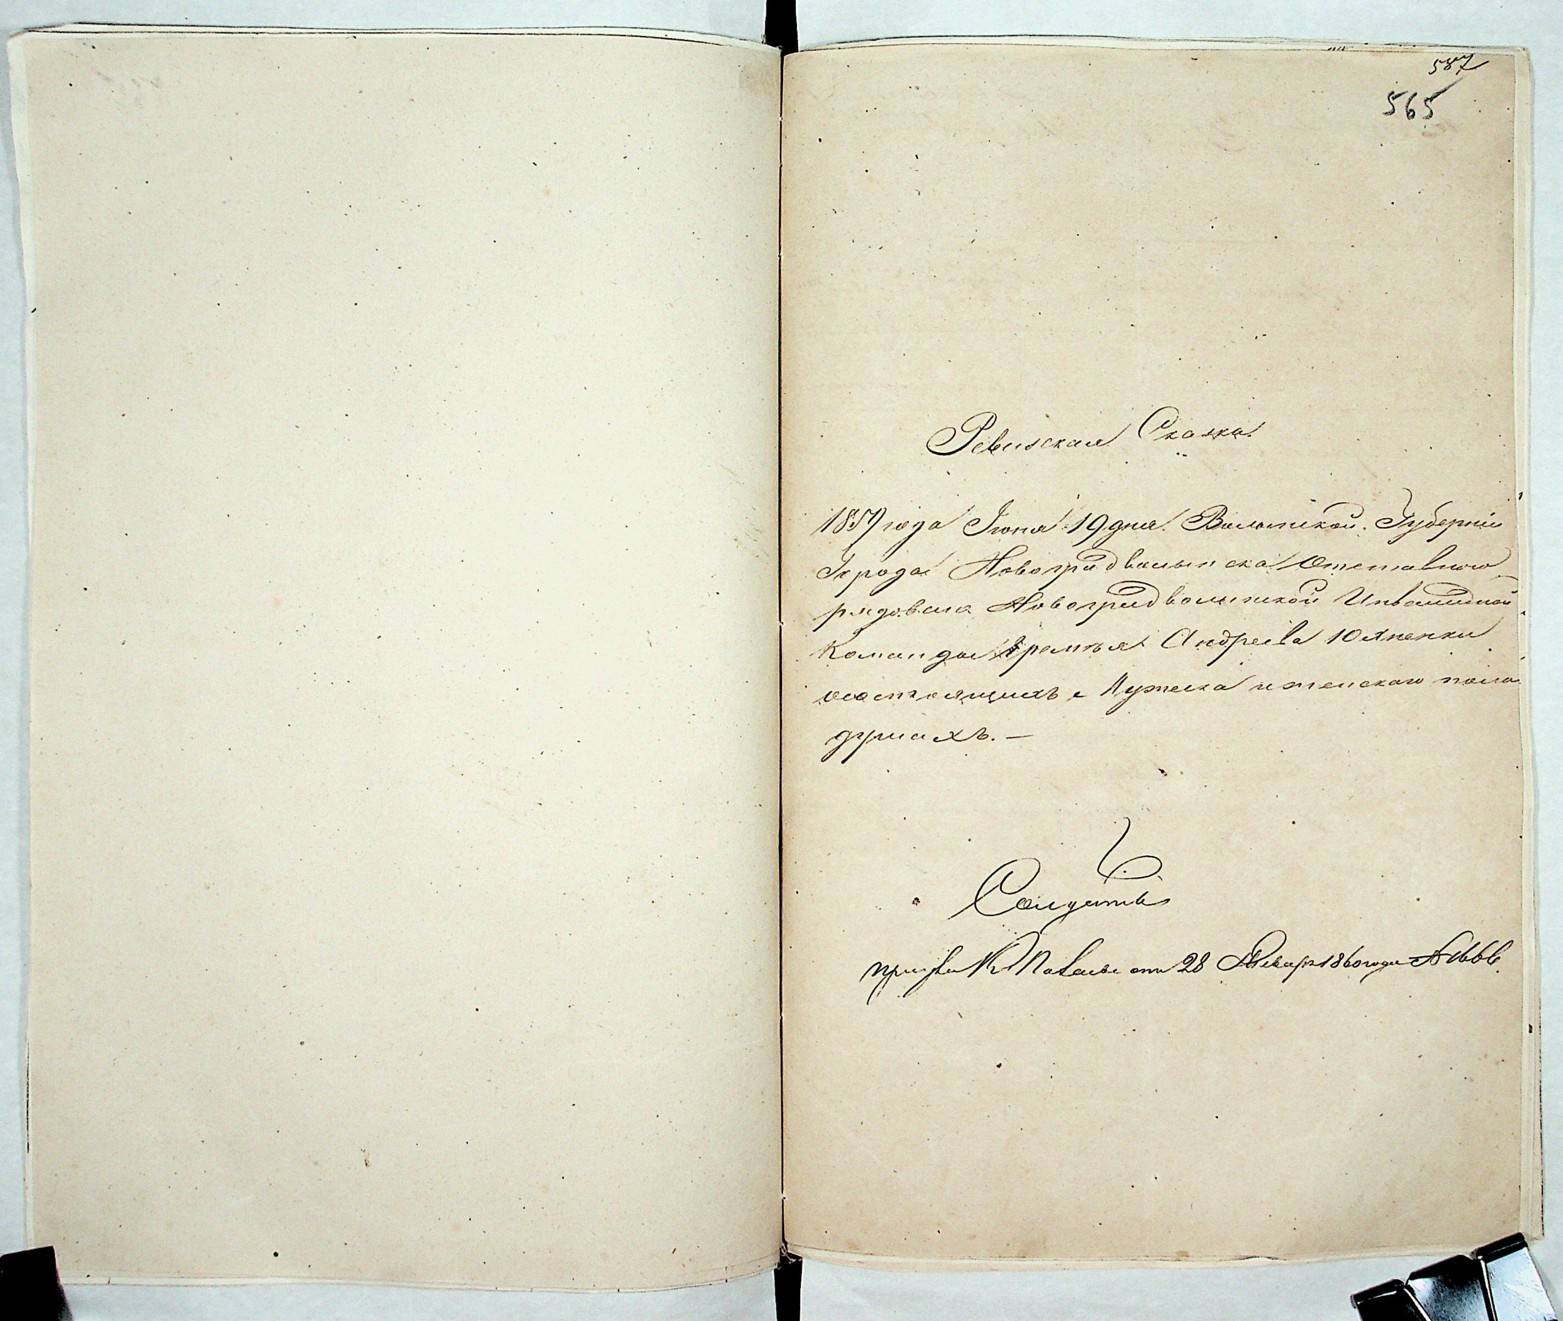 587
565
Ревизская Сказка
1857 года Іюня 19 дня Волынской Губерніи
Города Новоградволынска Отставного
рядоваго Новоградволынской Инвалидной
Команды Андреева Юхненки
о состоящихъ Мужеска и женскаго пола
душахъ. —
Солдатъ
при Палаты отъ 28 Января 1860 года № 1666.